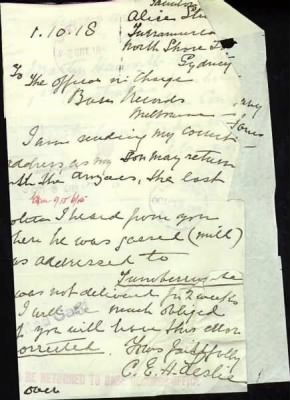 1.10.18
Alice St
Turramurra
North Shore
Sydney
To The Officer in Charge
Base Records
Melbourne
I am sending my correct
address as my Son may return
with the anzacs, the last
I heard from you
where he was gassed (mild)
was addressed to
was not delivered for 2 weeks
I will much obliged
if you will have this
corrected.
Yours faithfully
C. E. H. Leslie
BE RETURNED TO BASE
over